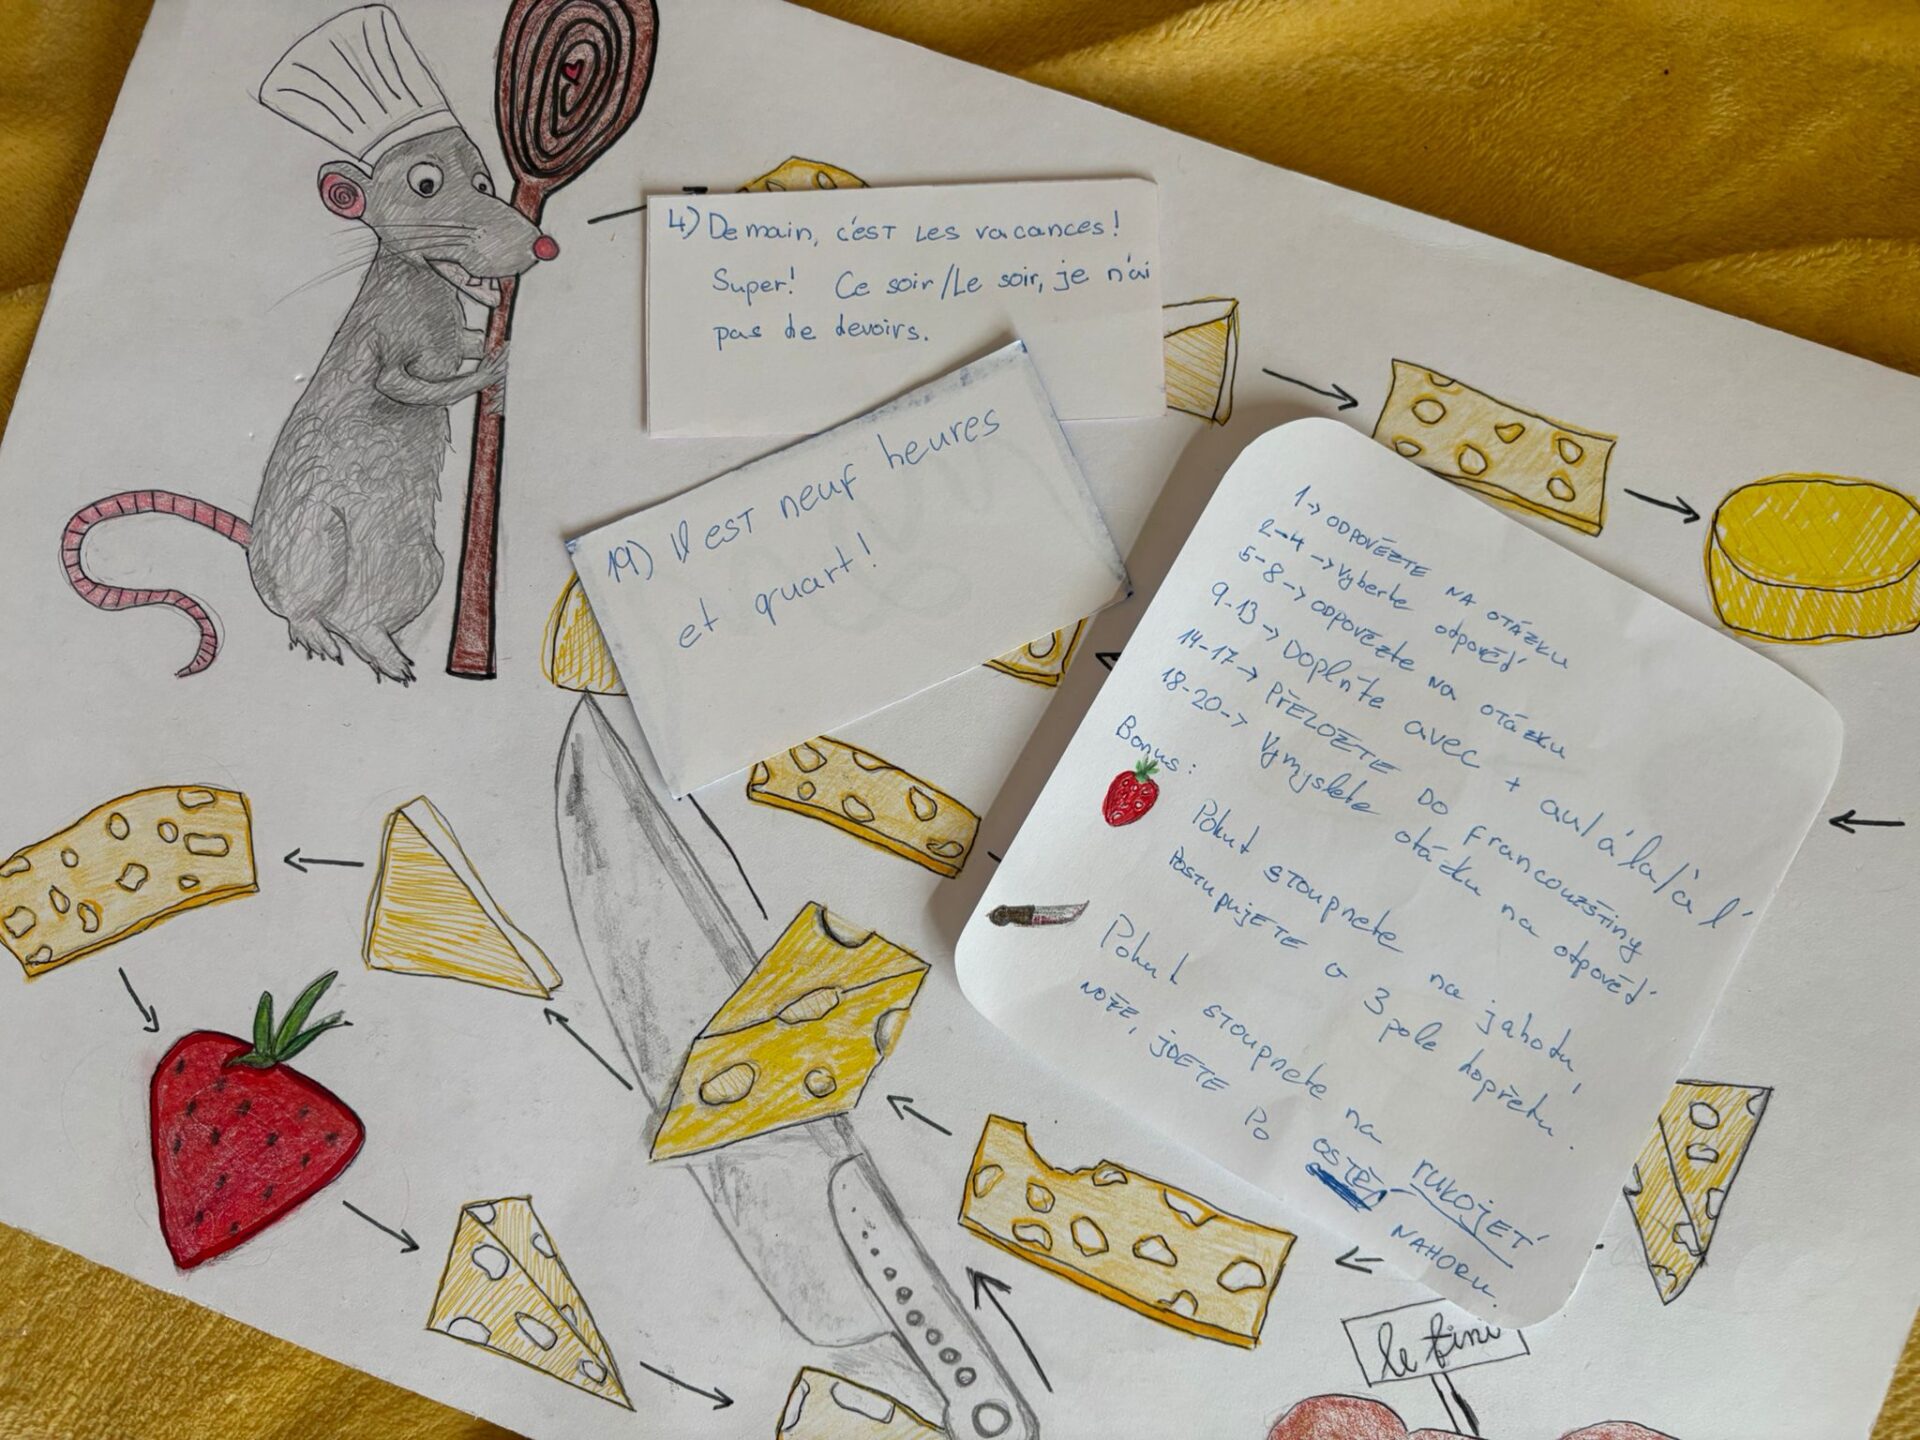 4) Demain, c'est les vacances!
Super! Ce soir/Le soir, je n'ai
pas de devoirs.
19) Il est neuf heures
et quart!
1-> ODPOVĚZTE NA OTÁZKU
2-4 -> Vyberte odpověď
5-8 -> ODPOVĚZTE NA OTÁZKU
9-13 -> Doplňte avec + au/à la/à l'
14-17-> PŘELOŽTE DO francouzštiny
18-20-> Vymyslete otázku na odpověď
Bonus:
Pokud stoupnete na jahodu,
POSTUPUJETE o 3 pole dopředu.
Pokud stoupnete na RUKOJETÍ
NOŽE, JDETE PO OSTŘÍ NAHORU.
le fini